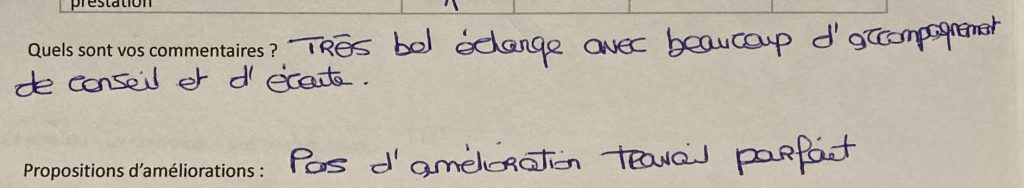 prestation
Quels sont vos commentaires ? TRÈS bel échange avec beaucoup d'accompagnement
de conseil et d'écoute.
Propositions d'améliorations : Pas d'amélioration travail parfait